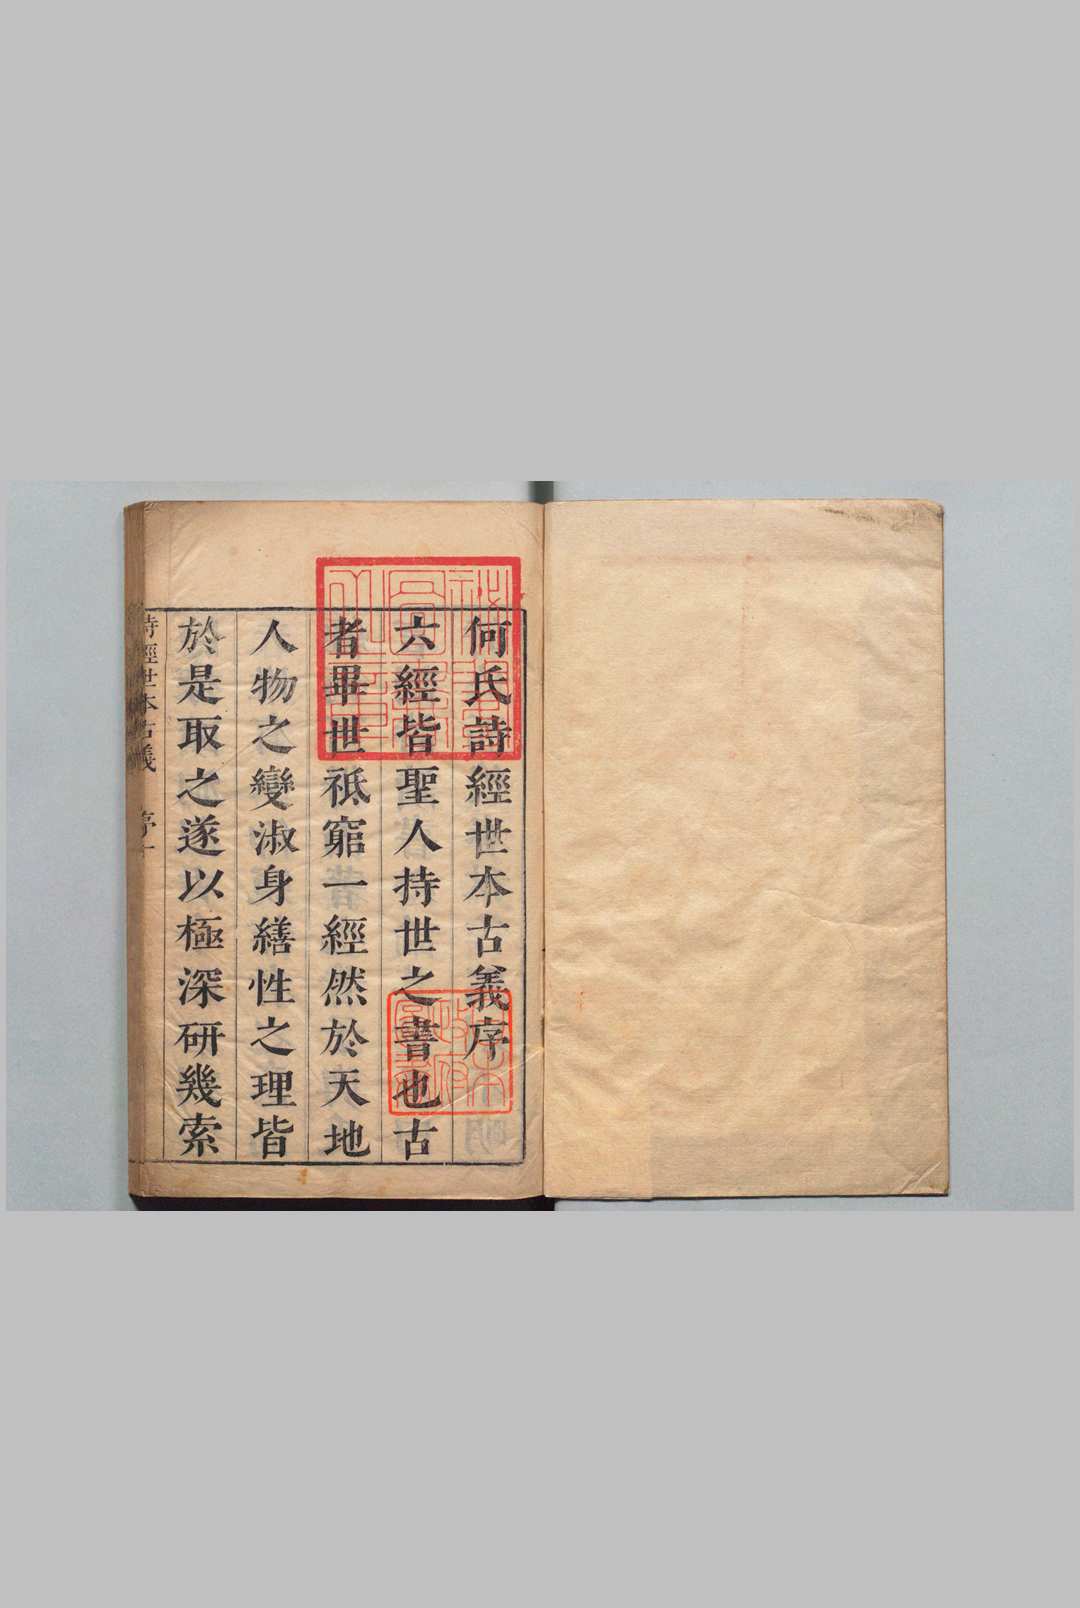 何氏詩經世本古義序
六經皆聖人持世之書也古
者畢世祗窮一經然於天地
人物之變淑身繕性之理皆
於是取之遂以極深研幾索
詩經世本古義 序